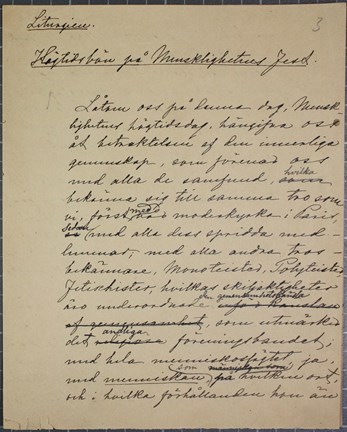 Liturgien.
3
Högtidsbön på Mensklighetens Fest.
Låtom oss på denna dag, Mensk-
lighetens högtidsdag, hängifva oss
åt betraktelsen af den innerliga
gemenskap, som förenar oss
med alla de samfund, hvilka
bekänna sig till samma tro som
vi, först med moderkyrka i Paris,
sedan med alla dess spridda med-
lemmar; med alla andra tros-
bekännare, Monoteister, Polyteister,
Fetischister, hvilkas skiljaktigheter
äro underordnade den
af som utmärker
det andliga religiösa föreningsbandet;
med hela menniskoslägtet ja,
med menniskan, som på hvilken ort,
och i hvilka förhållanden hon än